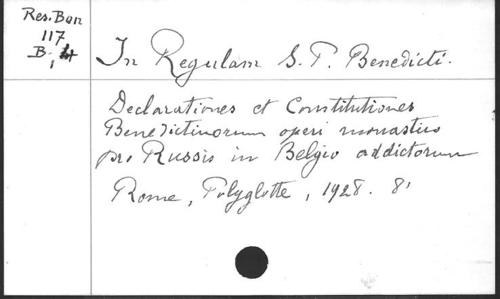 Res. Ben
117
B, 4
In Regulam S. P. Benedicti.
Declarationes et Constitutiones
Benedictinorum operi monastico
pro Russis in Belgio addictorum
Rome, Polyglotte, 1928. 8°